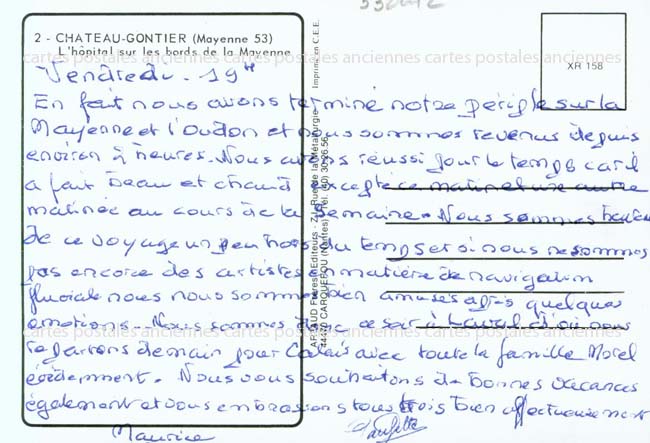 2 - CHATEAU-GONTIER (Mayenne 53)
L'hôpital sur les bords de la Mayenne
cartes postales anciennes cartes postales anciennes cartes postales anciennes
XR 158
Imprimé en C.E.E.
ARTAUD Frères Editeurs - Z.I. Rue de la Métallurgie
44470 CARQUEFOU (Nantes) Tél. (40) 30.26.56
Vendredi - 19H
En fait nous avons terminé notre périple sur la
Mayenne et l'Oudon et nous sommes revenus depuis
environ 2 heures. Nous avons réussi pour le temps car il
a fait beau et chaud excepté ce matin et une autre
matinée au cours de la semaine. Nous sommes
de ce voyage un peu hors du temps et si nous ne sommes
pas encore des artistes en matière de navigation
fluviale nous nous sommes bien amusés après quelques
émotions. Nous sommes donc ce soir à Laval d'où nous
cartes postales anciennes cartes postales anciennes cartes postales anciennes
repartons demain pour Calais avec toute la famille Morel
évidemment. Nous vous souhaitons de bonnes vacances
également et vous embrassons tous trois bien affectueusement
Maurice